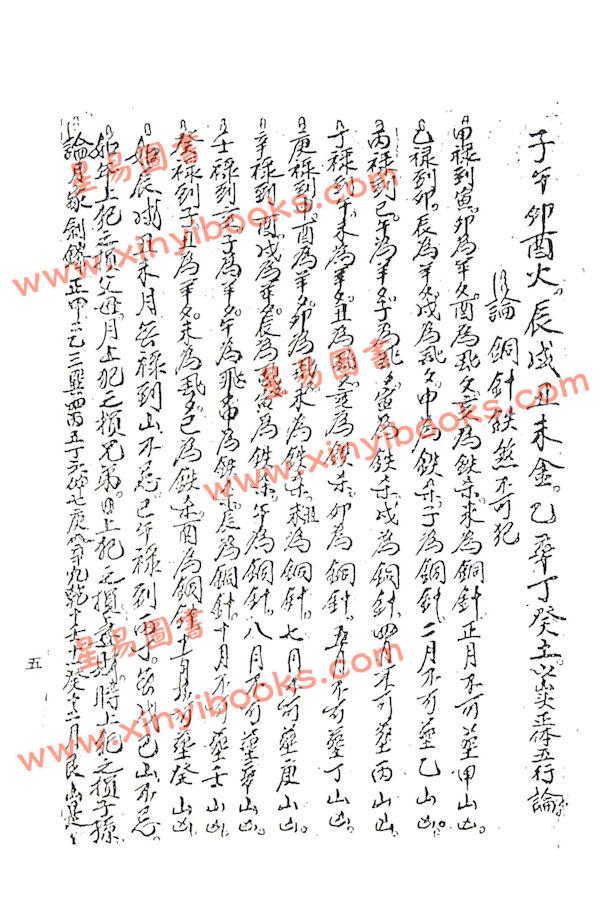 子午卯酉火。辰戌丑未金。乙辛丁癸土以山頭正体五行論
論銅針鉄煞不可犯
甲禄到寅。卯為羊刃。酉為飛刃。辰為鉄杀。未為銅針。正月不可葬甲山凶。
乙禄到卯。辰為羊刃。戌為飛刃。申為鉄杀。子為銅針。二月不可葬乙山凶。
丙禄到巳。午為羊刃。子為飛刃。寅為鉄杀。戌為銅針。四月不可葬丙山凶。
丁禄到午。未為羊刃。丑為飛刃。為鉄杀。卯為銅針。五月不可葬丁山凶。
庚禄到申。酉為羊刃。卯為飛刃。未為鉄杀。為銅針。七月不可葬庚山凶。
辛禄到酉。戌為羊刃。辰為飛刃。寅為鉄杀。午為銅針。八月不可葬辛山凶。
壬禄到亥。子為羊刃。午為飛刃。申為鉄杀。辰為銅針。十月不可葬壬山凶。
癸禄到子。丑為羊刃。未為飛刃。巳為鉄杀。酉為銅針。十一月不可葬癸山凶。
如辰戌丑未月無禄到山不忌。巳午禄到丙丁。無戊己山不忌。
如年上犯之損父母。月上犯之損兄弟。日上犯之損妻財。時上犯之損子孫。
論月家剣鋒正甲二乙三巽四丙五丁六坤七庚八辛九乾十壬十一癸十二月艮山是
五
星易圖書
www.xinyibooks.com
星易圖書
www.xinyibooks.com
星易圖書
www.xinyibooks.com